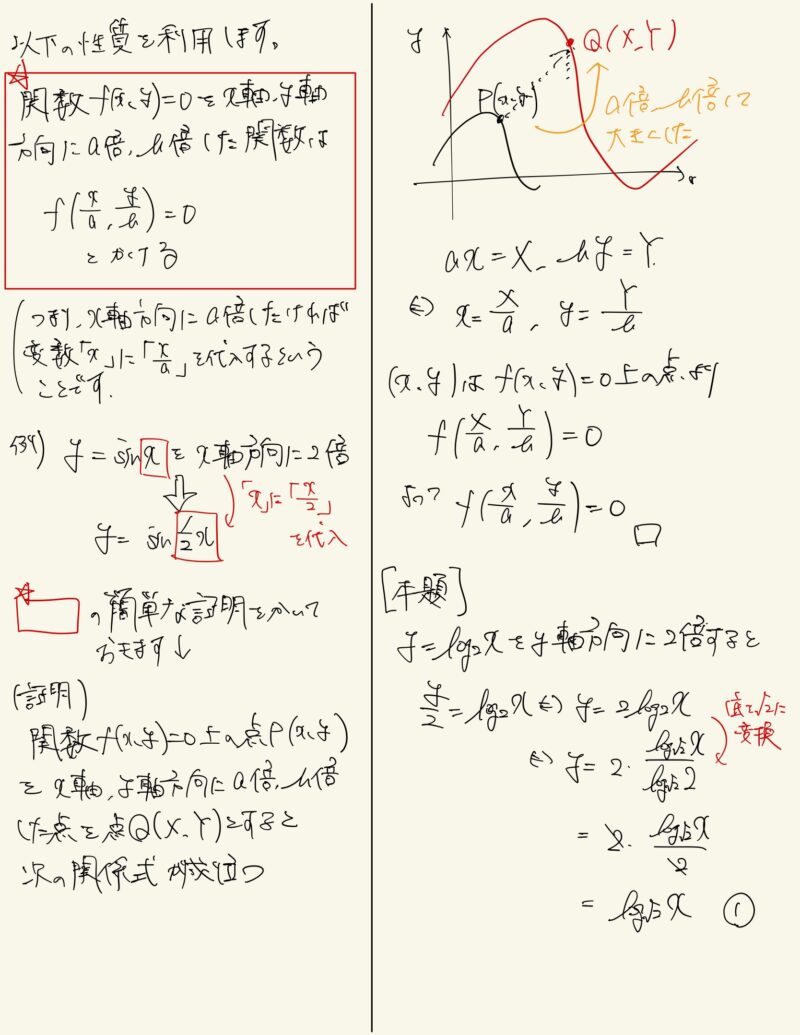 以下の性質を利用します。
関数 f(x,y)=0 を x軸,y軸
方向にa倍,b倍した関数は
f(x/a, y/b)=0
とかける
(つまり,x軸方向にa倍したければ
変数「x」に「x/a」を代入するという
ことです.
例) y=sin x を x軸方向に2倍
「x」に「x/2」
を代入
y= sin 1/2 x
の簡単な証明をかいて
おきます↓
(証明)
関数f(x,y)=0上の点P(x,y)
を x軸,y軸方向にa倍,b倍
した点を点Q(X,Y)とすると
次の関係式が成立つ
y
Q(X,Y)
P(x,y)
a倍,b倍して
大きくした
x
ax=X, by=Y
⇔ x=X/a, y=Y/b
(x,y)は f(x,y)=0上の点より
f(X/a, Y/b)=0
よって f(x/a, y/b)=0 □
[本題]
y=log₂x を y軸方向に2倍すると
y/2=log₂x ⇔ y=2log₂x
底を√2に
変換
⇔ y=2・log√2 x/log√2 2
=2・log√2 x/2
=log√2 x ①